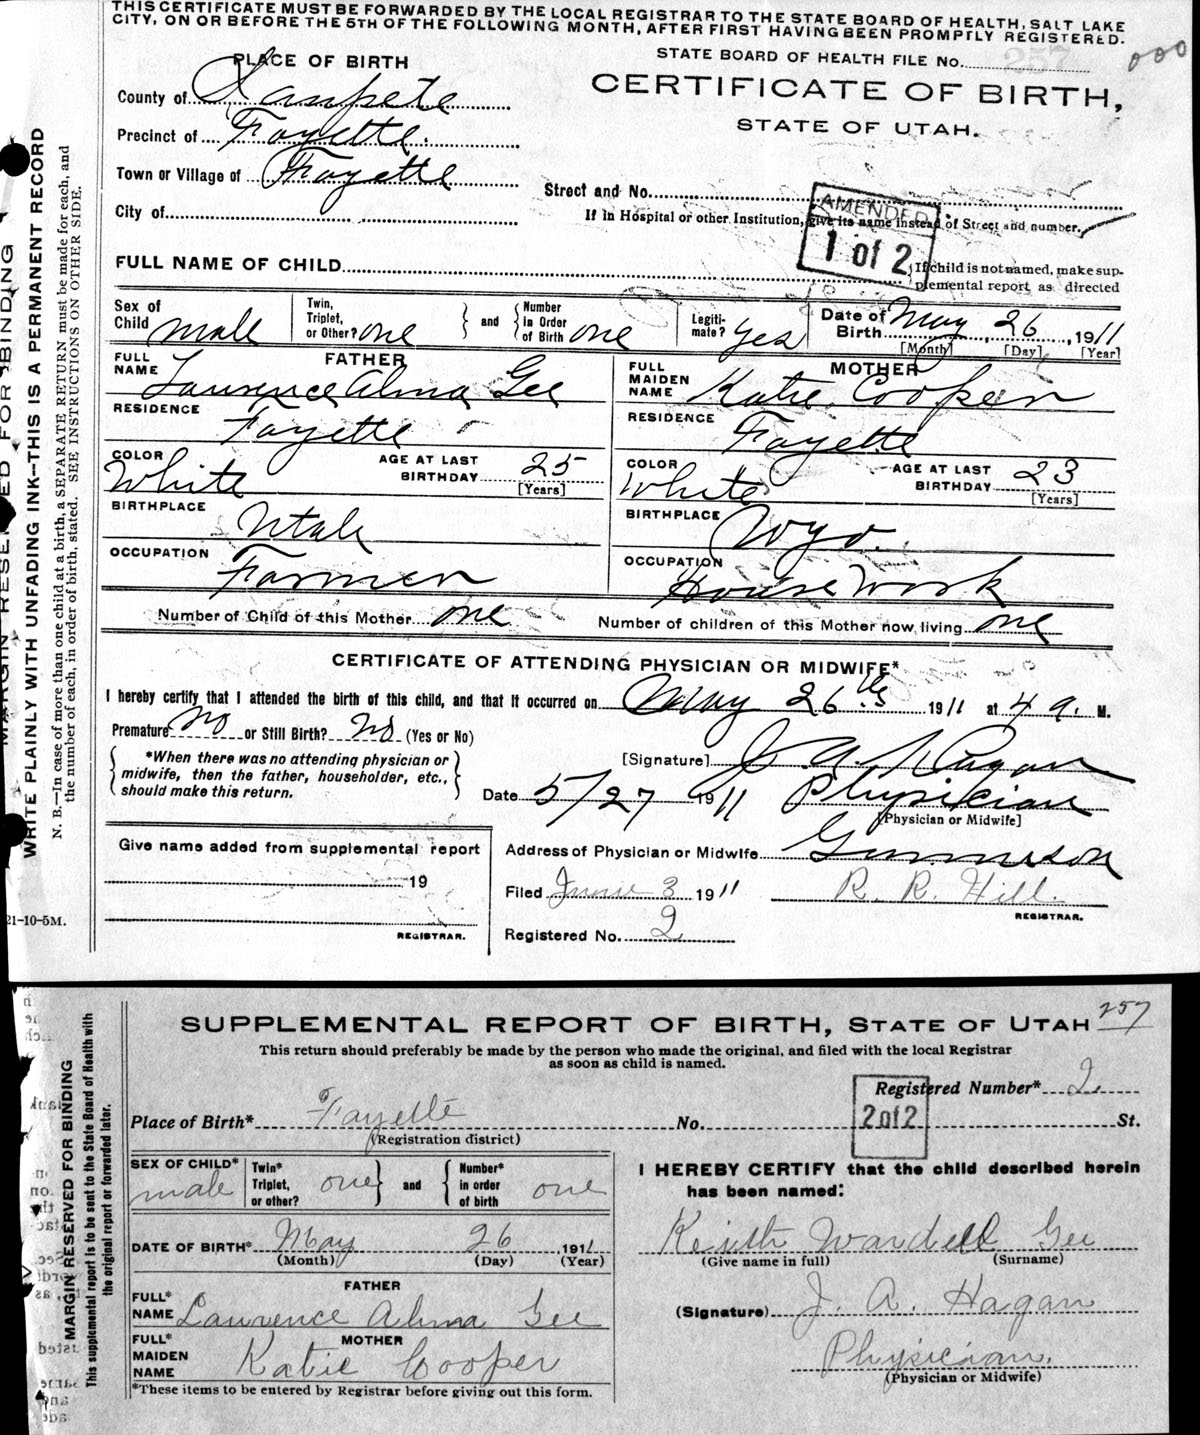 THIS CERTIFICATE MUST BE FORWARDED BY THE LOCAL REGISTRAR TO THE STATE BOARD OF HEALTH, SALT LAKE
CITY, ON OR BEFORE THE 5TH OF THE FOLLOWING MONTH, AFTER FIRST HAVING BEEN PROMPTLY REGISTERED.
STATE BOARD OF HEALTH FILE No. 257
000
PLACE OF BIRTH
CERTIFICATE OF BIRTH,
STATE OF UTAH.
County of Sanpete
Precinct of Fayette.
Town or Village of Fayette
City of
Street and No.
If in Hospital or other Institution, give its name instead of Street and number.
AMENDED
1 of 2
FULL NAME OF CHILD
If child is not named, make sup-
plemental report as directed
Sex of Child male
Twin, Triplet, or Other? one
and
Number in Order of Birth one
Legiti-mate? yes
Date of Birth May 26, 1911
[Month] [Day] [Year]
FATHER
FULL NAME Lawrence Alma Gee
RESIDENCE Fayette
COLOR White
AGE AT LAST BIRTHDAY 25
[Years]
BIRTHPLACE Utah
OCCUPATION Farmer
MOTHER
FULL MAIDEN NAME Katie Cooper
RESIDENCE Fayette
COLOR White
AGE AT LAST BIRTHDAY 23
[Years]
BIRTHPLACE Wyo.
OCCUPATION House Work
Number of Child of this Mother one
Number of children of this Mother now living one
CERTIFICATE OF ATTENDING PHYSICIAN OR MIDWIFE*
I hereby certify that I attended the birth of this child, and that it occurred on May 26th 1911 at 4 a. M.
Premature No or Still Birth? No (Yes or No)
*When there was no attending physician or
midwife, then the father, householder, etc.,
should make this return.
[Signature] J. A. Hagan
Date 5/27 1911 Physician
[Physician or Midwife]
Give name added from supplemental report
19
REGISTRAR.
Address of Physician or Midwife Gunnison
Filed June 3 1911 R. R. Hill
REGISTRAR.
Registered No. 2
MARGIN RESERVED FOR BINDING
WRITE PLAINLY WITH UNFADING INK—THIS IS A PERMANENT RECORD
N. B.—In case of more than one child at a birth, a SEPARATE RETURN must be made for each, and
the number of each, in order of birth, stated. SEE INSTRUCTIONS ON OTHER SIDE.
21-10-5M.
257
SUPPLEMENTAL REPORT OF BIRTH, STATE OF UTAH
This return should preferably be made by the person who made the original, and filed with the local Registrar
as soon as child is named.
Registered Number* 2
2 of 2
Place of Birth* Fayette No. St.
(Registration district)
SEX OF CHILD* male
Twin* Triplet, or other? one
and
Number* in order of birth one
DATE OF BIRTH* May 26 1911
(Month) (Day) (Year)
FATHER
FULL* NAME Lawrence Alma Gee
MOTHER
FULL* MAIDEN NAME Katie Cooper
*These items to be entered by Registrar before giving out this form.
I HEREBY CERTIFY that the child described herein
has been named:
Keith Wardell Gee
(Give name in full) (Surname)
(Signature) J. A. Hagan
Physician.
(Physician or Midwife)
MARGIN RESERVED FOR BINDING
This supplemental report is to be sent to the State Board of Health with
the original report or forwarded later.